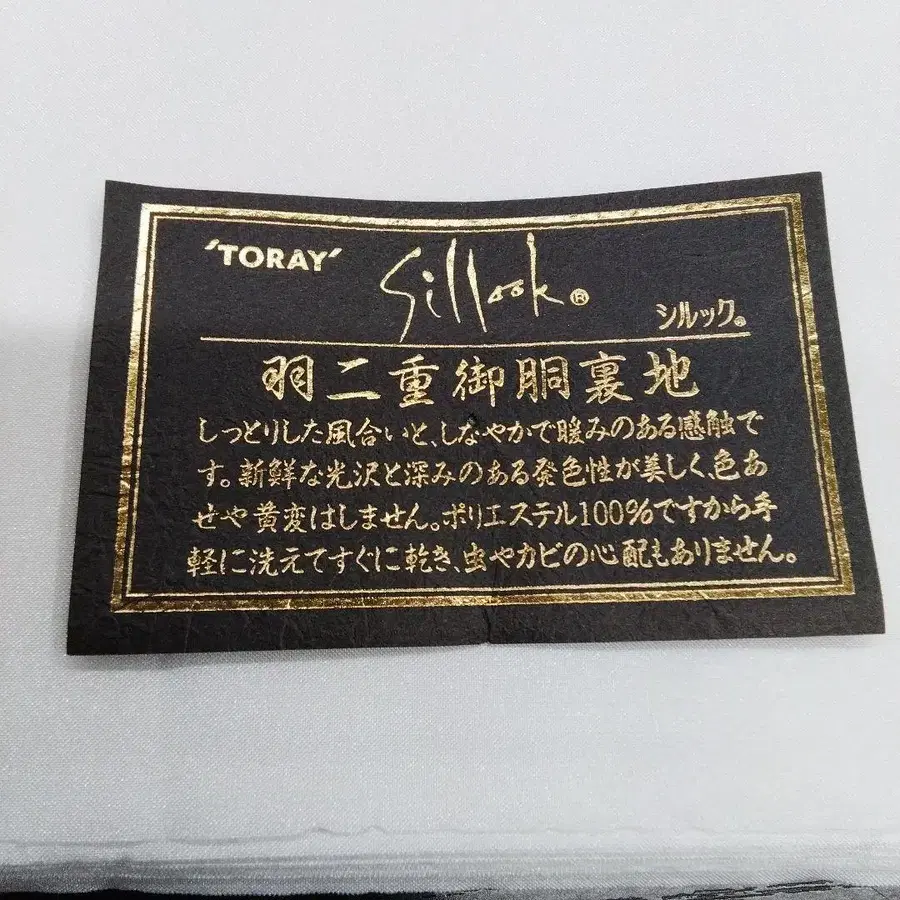 'TORAY'
Sillook®
シルック®
羽二重御胴裏地
しっとりした風合いと、しなやかで暖みのある感触で
す。新鮮な光沢と深みのある発色性が美しく、色あ
せや黄変はしません。ポリエステル100%ですから手
軽に洗えてすぐに乾き、虫やカビの心配もありません。